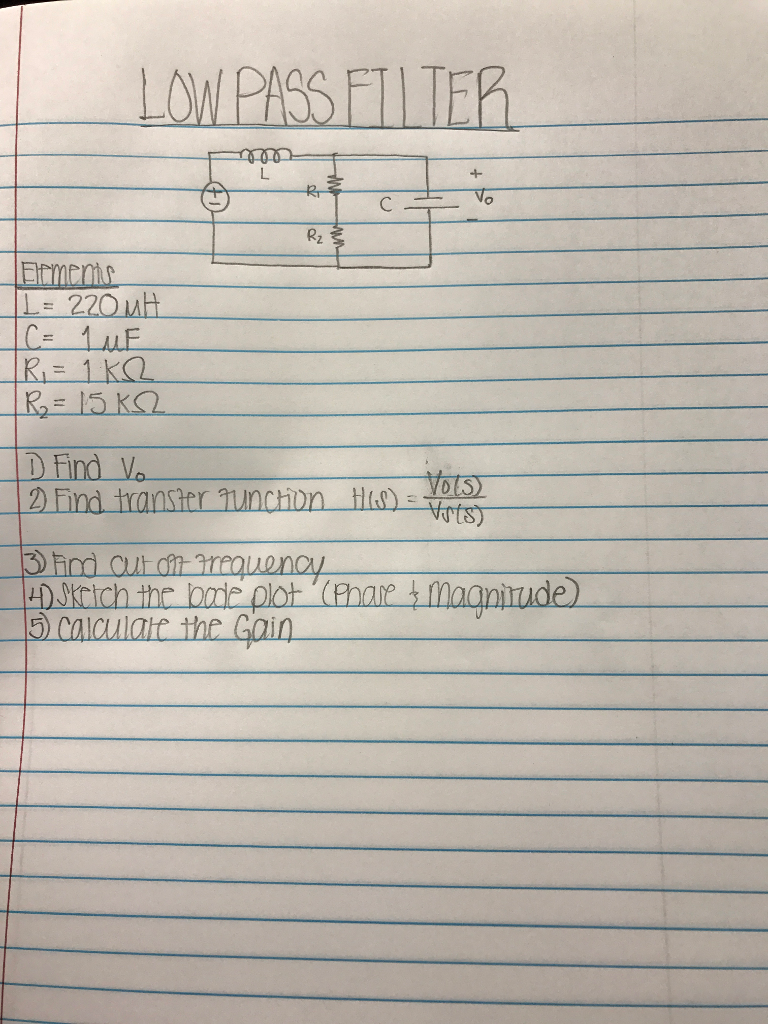 LOW PASS FILTER
L
R₁
R₂
C
+
Vo
-
Elements
L = 220 μH
C = 1 μF
R₁ = 1 KΩ
R₂ = 15 KΩ
1) Find Vo
2) Find transfer function H(s) = Vo(s) / Vs(s)
3) Find cut off frequency
4) Sketch the bode plot (Phase & Magnitude)
5) Calculate the Gain